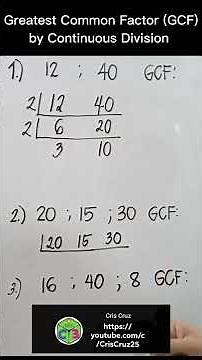 Greatest Common Factor (GCF)
by Continuous Division
1.) 12 ; 40 GCF:
2 12 40
2 6 20
3 10
2.) 20 ; 15 ; 30 GCF:
20 15 30
3.) 16 ; 40 ; 8 GCF:
Cris Cruz
https://
youtube.com/c
/CrisCruz25